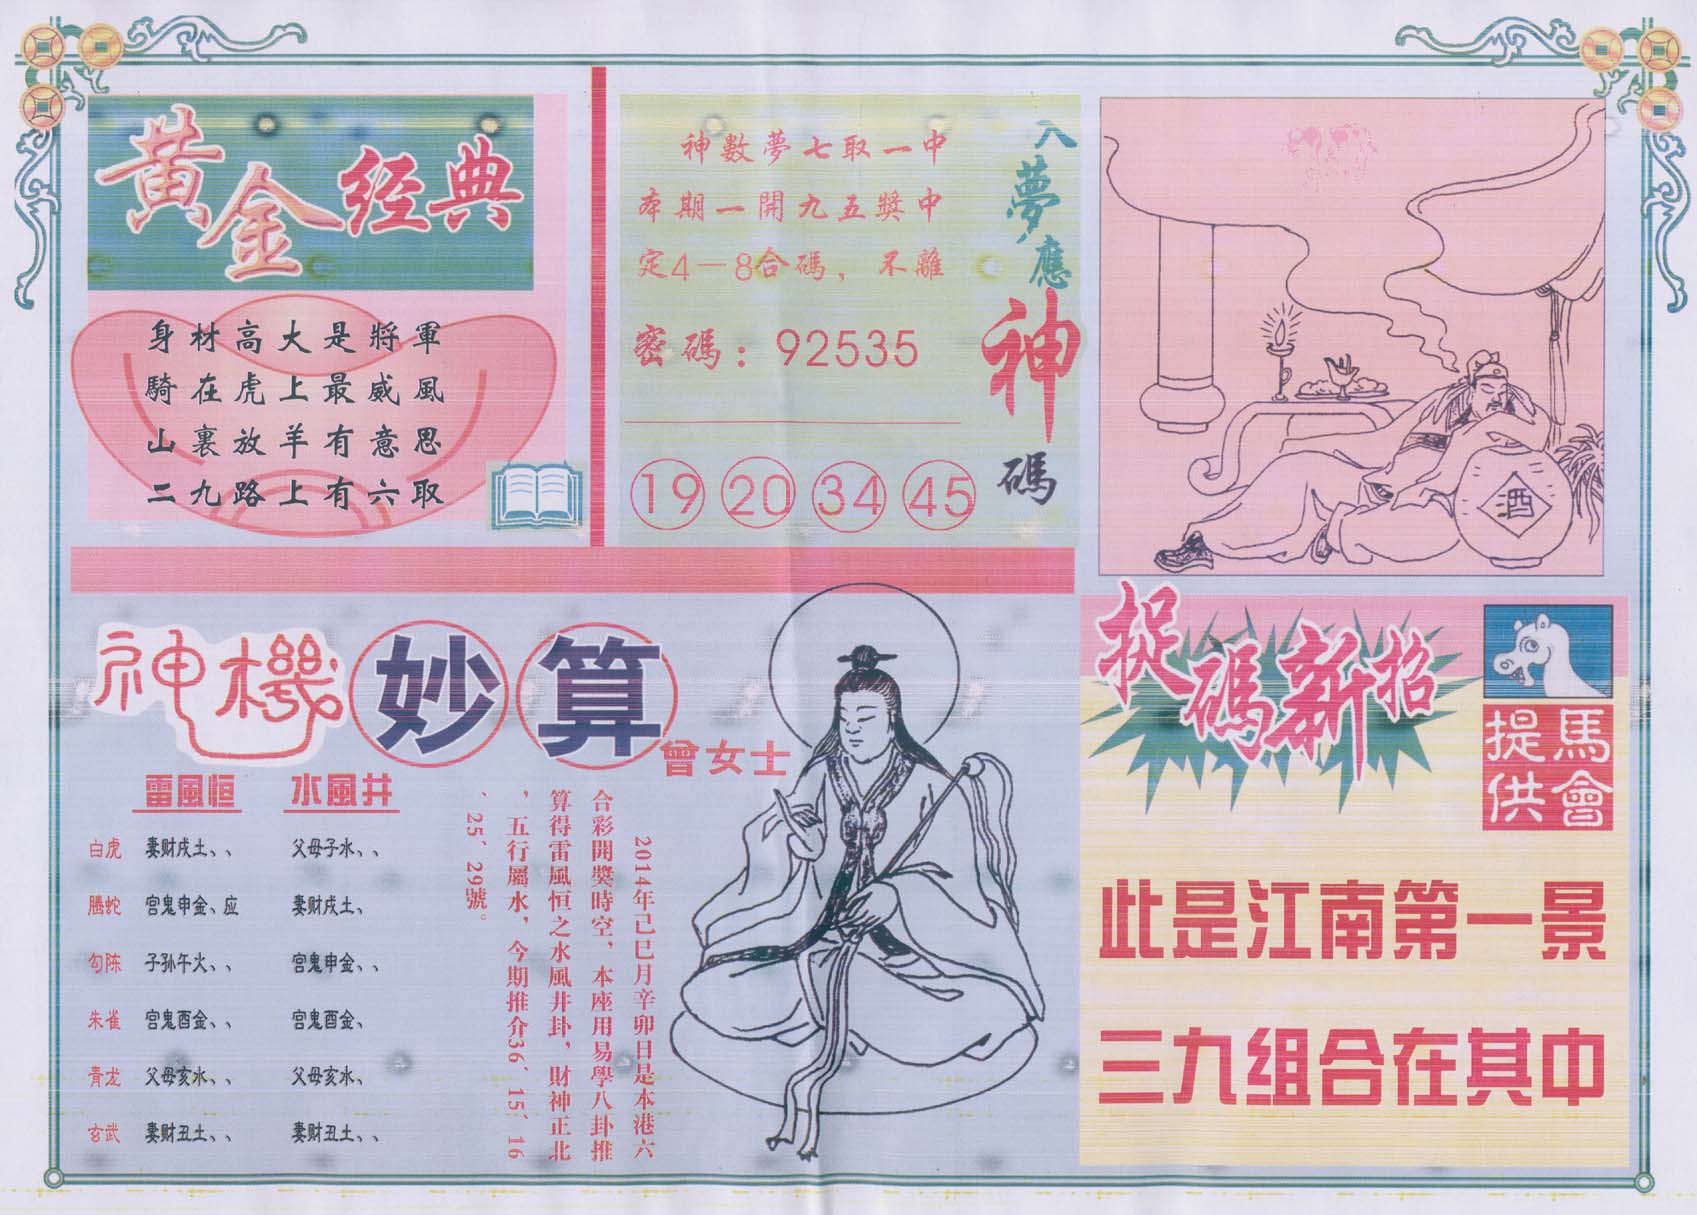 黄金经典
身材高大是將軍
騎在虎上最威風
山裏放羊有意思
二九路上有六取
神數夢七取一中
本期一開九五獎中
定4—8合碼，不離
密碼：92535
19 20 34 45
入夢應神碼
酒
神機妙算
曾女士
雷風恒 水風井
白虎 妻财戌土、、 父母子水、、
騰蛇 官鬼申金、应 妻财戌土、
勾陈 子孙午火、、 官鬼申金、、
朱雀 官鬼酉金、、 官鬼酉金、
青龙 父母亥水、、 父母亥水、
玄武 妻财丑土、、 妻财丑土、、
2014年己巳月辛卯日是本港六
合彩開獎時空，本座用易學八卦推
算得雷風恒之水風井卦，財神正北
，五行屬水，今期推介36、15、16
、25、29號。
捉碼新招
馬會
提供
此是江南第一景
三九组合在其中